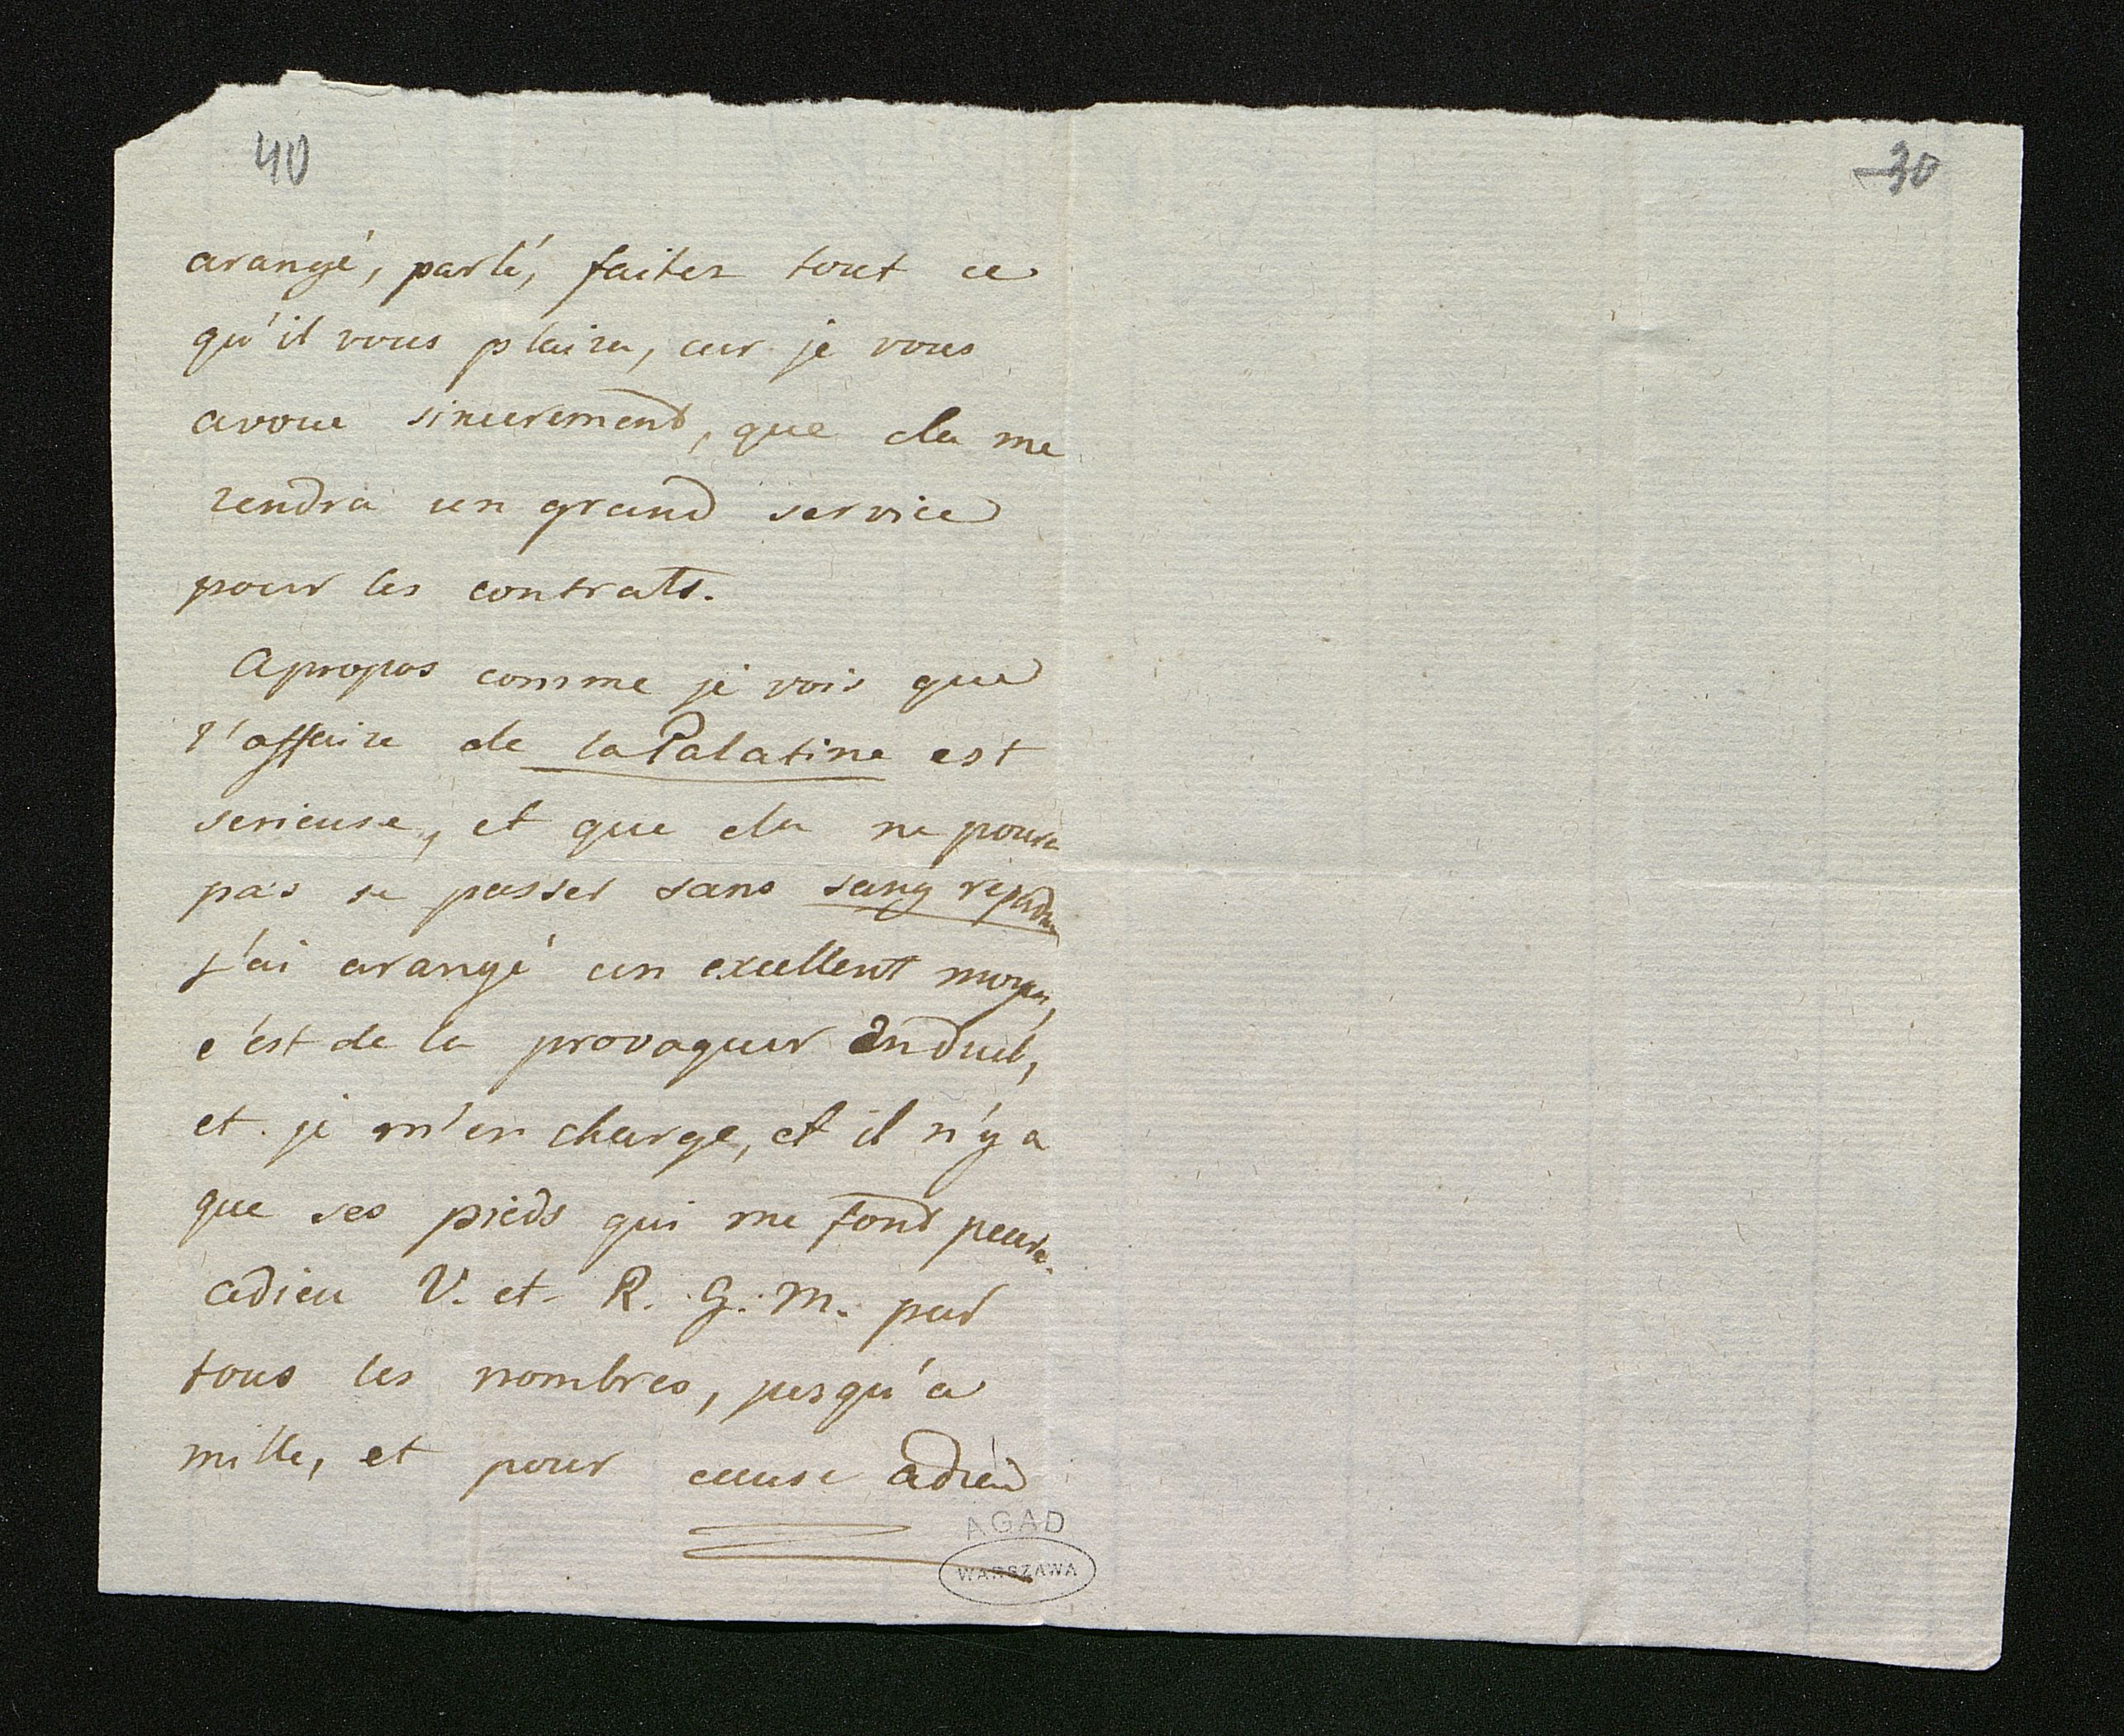 40
30
arangé, parlé, faites tout ce
qu'il vous plaira, car je vous
avoue sincerement, que cela me
rendra un grand service
pour les contrats.
Apropos comme je vois que
l'affaire de la Palatine est
serieuse, et que cela ne poura
pas se passer sans sang repandu
j'ai arangé un excellent moyen,
c'est de la provoquer en duel,
et je m'en charge, et il n'y a
que ses pieds qui me font peur.
adieu V. et R. G. M. par
tous les nombres, jusqu'a
mille, et pour cause adieu
AGAD
WARSZAWA